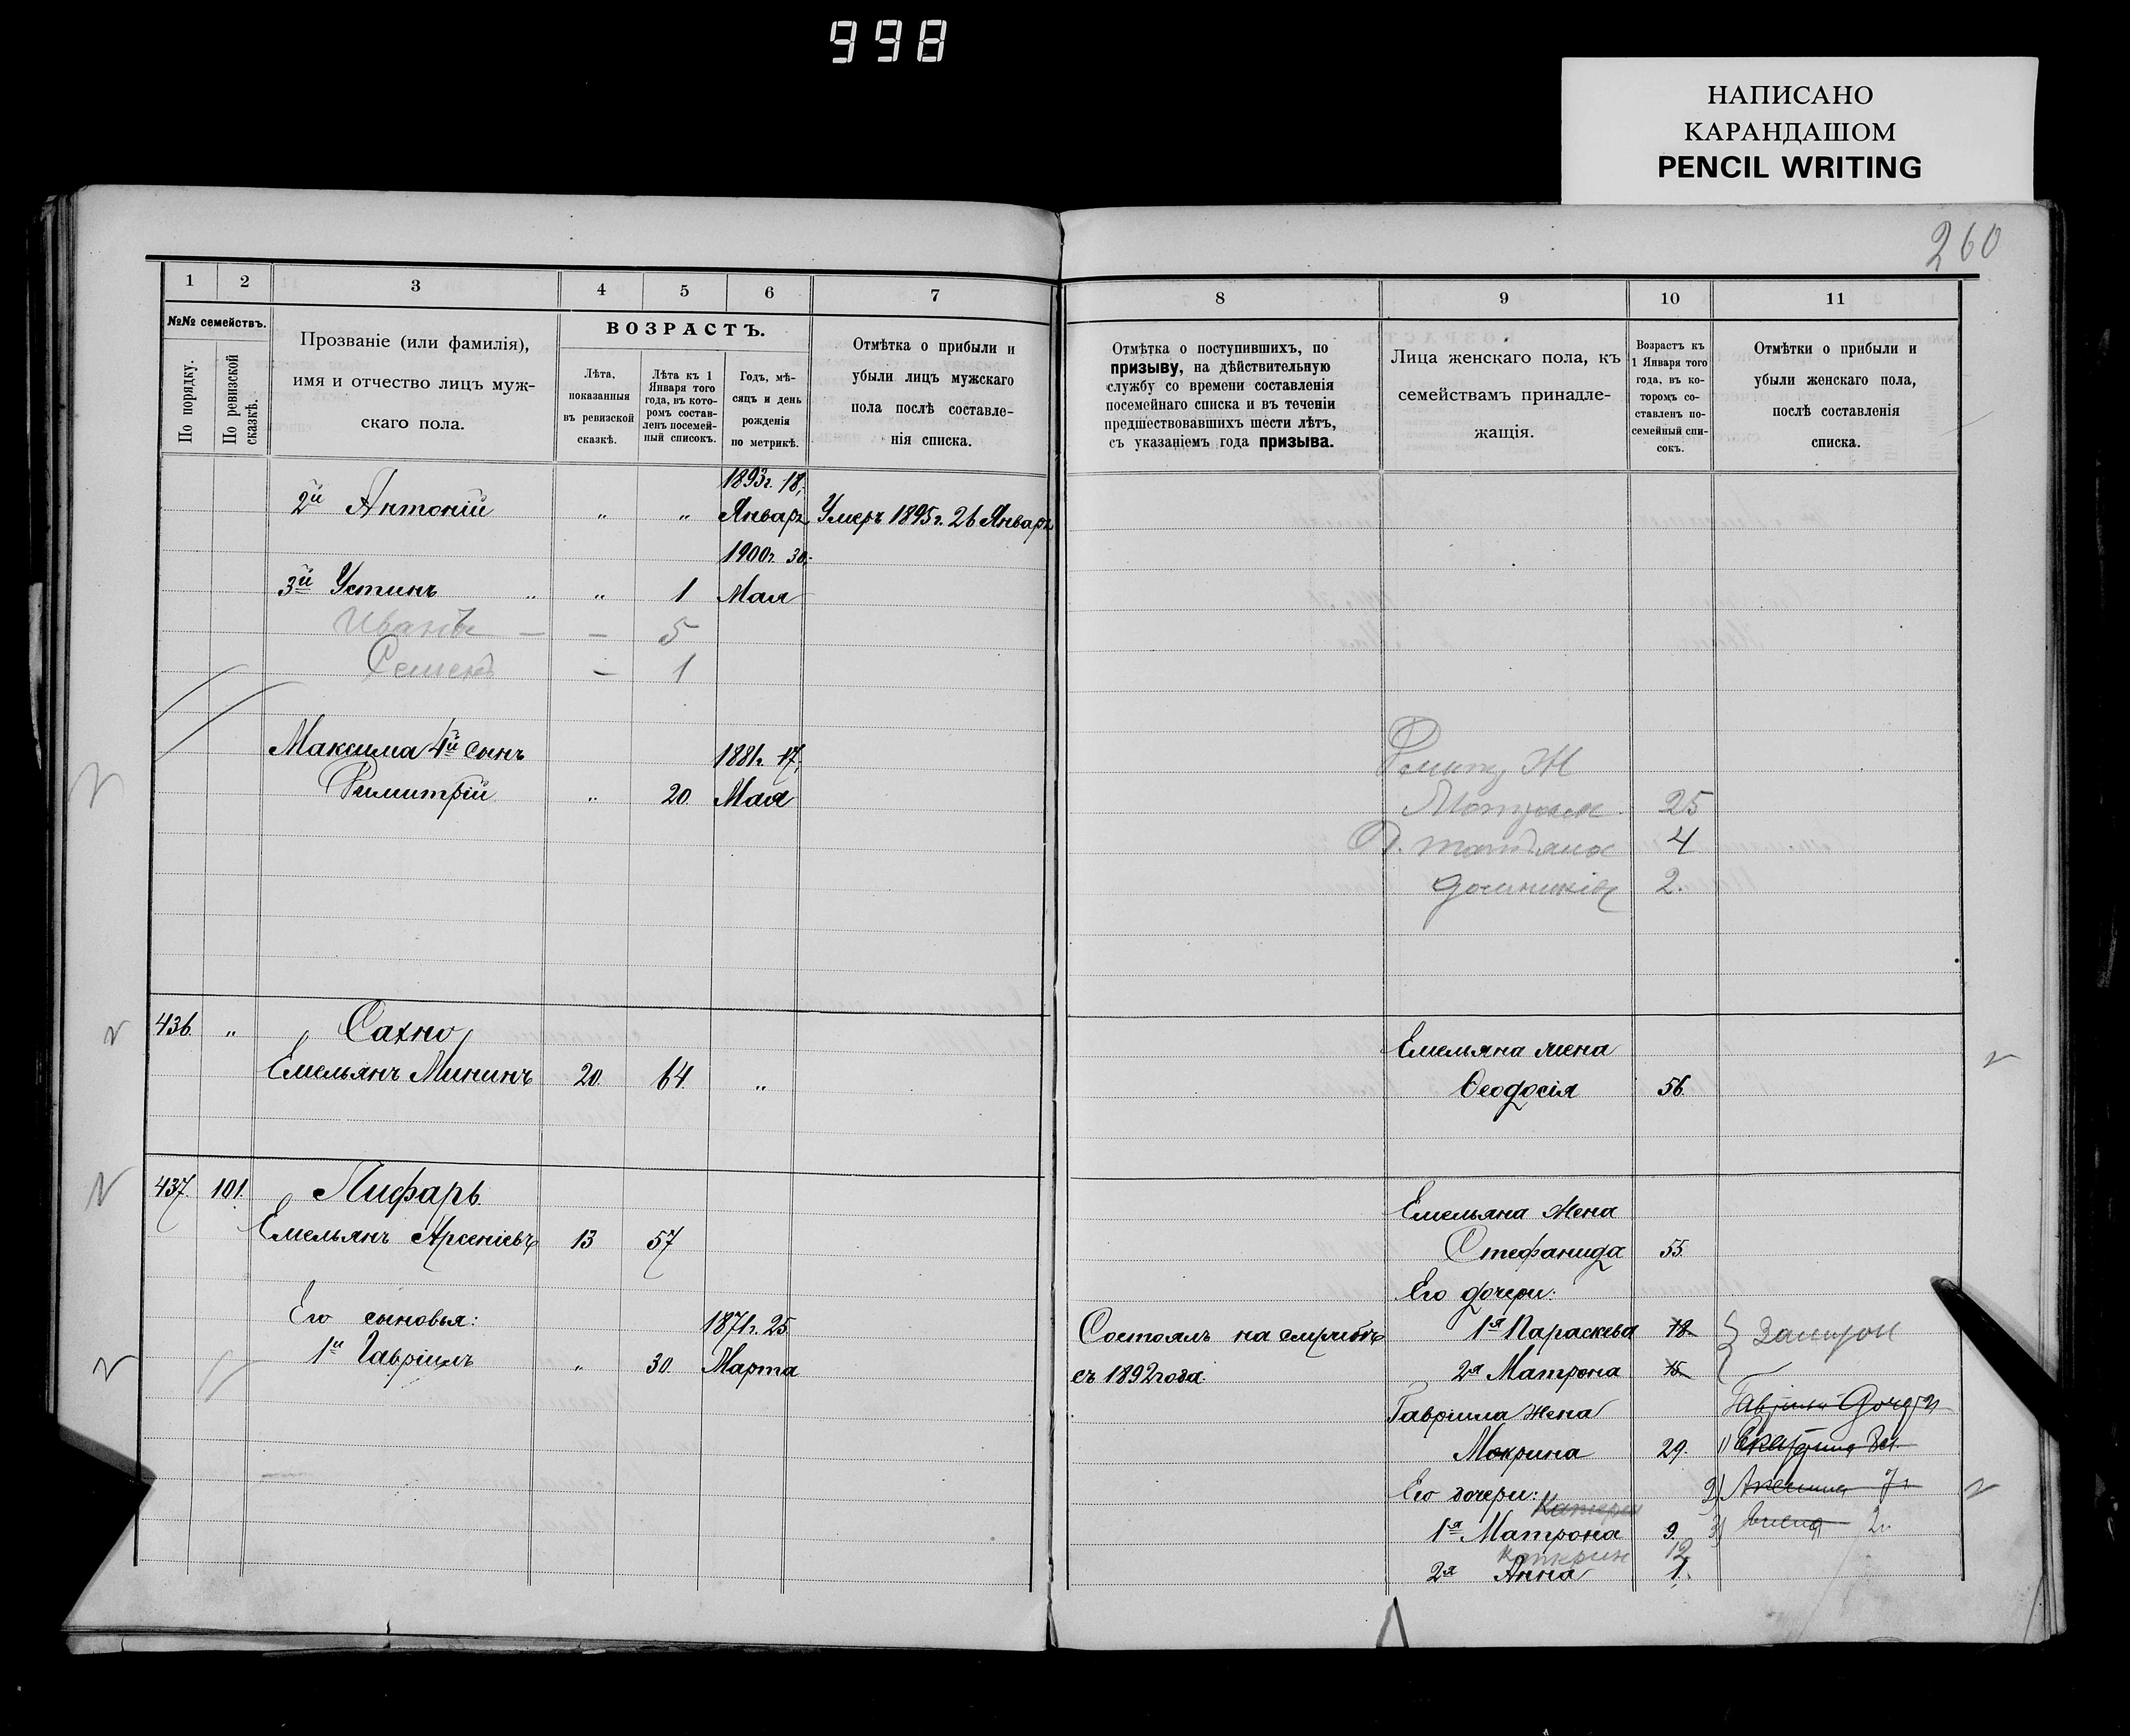 998
НАПИСАНО
КАРАНДАШОМ
PENCIL WRITING
260
1 2 3 4 5 6 7
№№ семействъ.
По порядку.
По ревизской сказкѣ.
Прозваніе (или фамилія),
имя и отчество лицъ муж-
скаго пола.
ВОЗРАСТЪ.
Лѣта,
показанныя
въ ревизской
сказкѣ.
Лѣта къ 1
Января того
года, въ кото-
ромъ состав-
ленъ посемей-
ный списокъ.
Годъ, мѣ-
сяцъ и день
рожденія
по метрикѣ.
Отмѣтка о прибыли и
убыли лицъ мужскаго
пола послѣ составле-
нія списка.
1893г. 18,
2й Антоній " " Января Умеръ 1895г. 26 Января
1900г. 30,
3й Устинъ " " 1 Мая
Иванъ — — 5
Семенъ — 1
Максима 4й сынъ 1881г. 17,
Димитрій " 20 Мая
436 " Сахно
Емельянъ Мининъ 20 64 "
437 101 Лифарь
Емельянъ Арсеніевъ 13 57
Его сыновья: 1871г. 25
1й Гавріилъ " 30 Марта
8 9 10 11
Отмѣтка о поступившихъ, по
призыву, на дѣйствительную
службу со времени составленія
посемейнаго списка и въ теченіи
предшествовавшихъ шести лѣтъ,
съ указаніемъ года призыва.
Лица женскаго пола, къ
семействамъ принадле-
жащія.
Возрастъ къ
1 Января того
года, въ ко-
торомъ со-
ставленъ по-
семейный спи-
сокъ.
Отмѣтки о прибыли и
убыли женскаго пола,
послѣ составленія
списка.
25
Д. 4
2.
Емельяна жена
Ѳеодосія 56
Емельяна жена
Стефанида 55
Его дочери:
Состоялъ на службѣ 1я Параскева 18
съ 1892 года. 2я Матрона 15
Гавріила жена
Мокрина 29.
Его дочери:
1я Матрона 9
12
2я Анна 1.